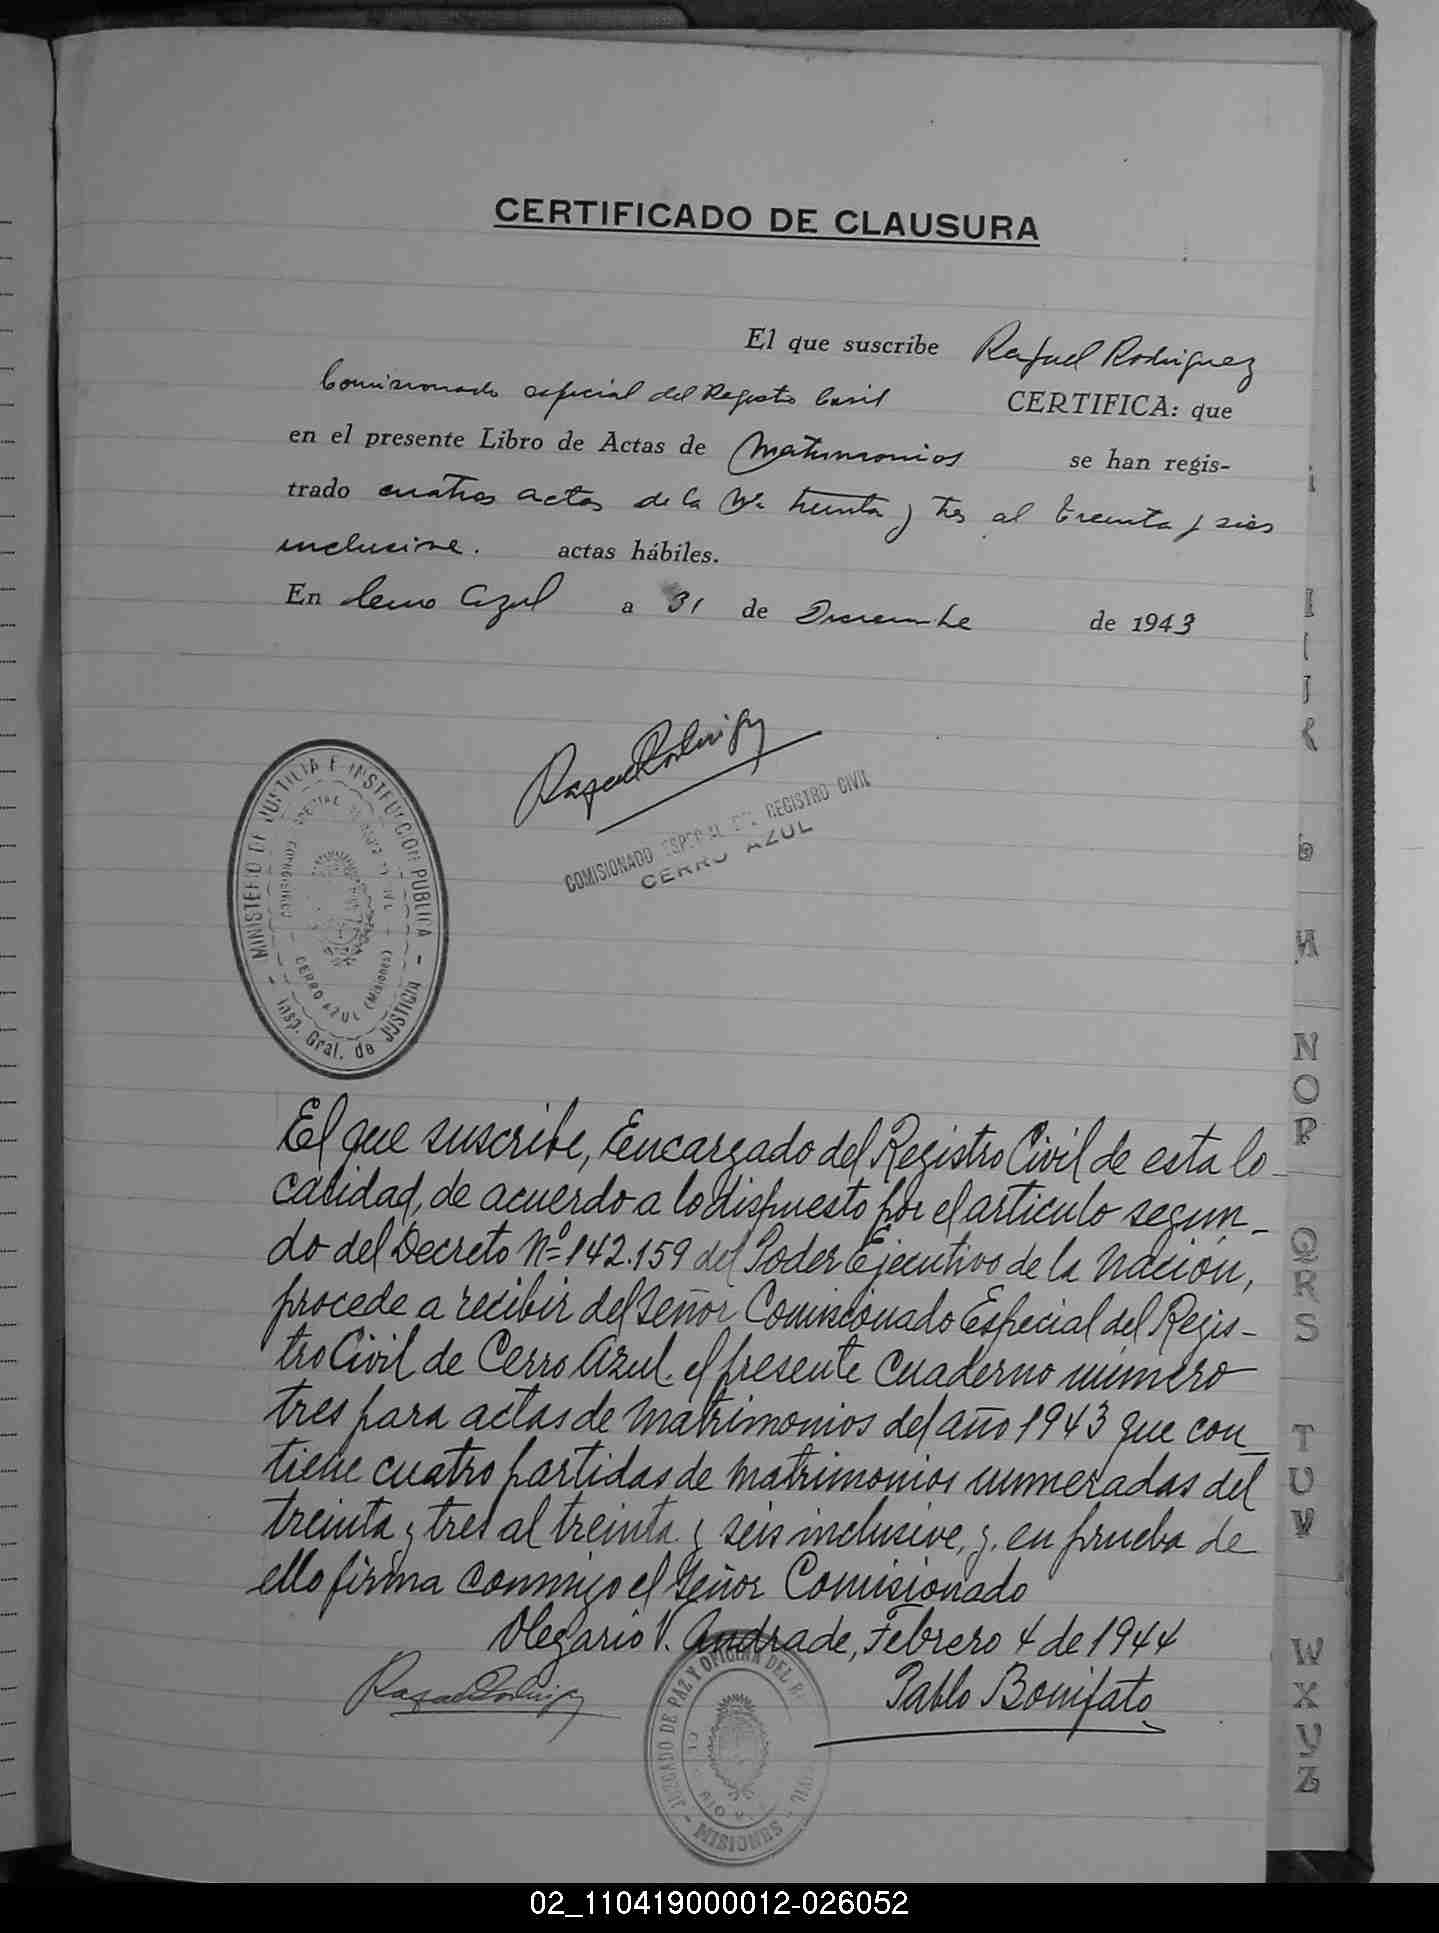 CERTIFICADO DE CLAUSURA
El que suscribe Rafael Rodriguez
Comisionado especial del Registro Civil CERTIFICA: que
en el presente Libro de Actas de Matrimonios se han regis-
trado cuatro actas de la Nº treinta y tres al treinta y seis
inclusive. actas hábiles.
En Cerro Azul a 31 de Diciembre de 1943
Rafael Rodriguez
COMISIONADO ESPECIAL DEL REGISTRO CIVIL
CERRO AZUL
MINISTERIO DE JUSTICIA E INSTRUCCION PUBLICA
- Insp. Gral. de JUSTICIA -
CERRO AZUL (Misiones)
El que suscribe, Encargado del Registro Civil de esta lo-
calidad, de acuerdo a lo dispuesto por el articulo segun-
do del Decreto Nº 142.159 del Poder Ejecutivo de la Nación,
procede a recibir del Señor Comisionado Especial del Regis-
tro Civil de Cerro Azul. el presente cuaderno número
tres para actas de Matrimonios del año 1943 que con-
tiene cuatro partidas de Matrimonios numeradas del
treinta y tres al treinta y seis inclusive, y, en prueba de
ello firma conmigo el Señor Comisionado
Olegario V. Andrade, Febrero 4 de 1944
Rafael Rodriguez
Pablo Bonifato
JUZGADO DE PAZ Y OFICINA DEL
- MISIONES -
N
O
P
Q
R
S
T
U
V
W
X
Y
Z
02_110419000012-026052